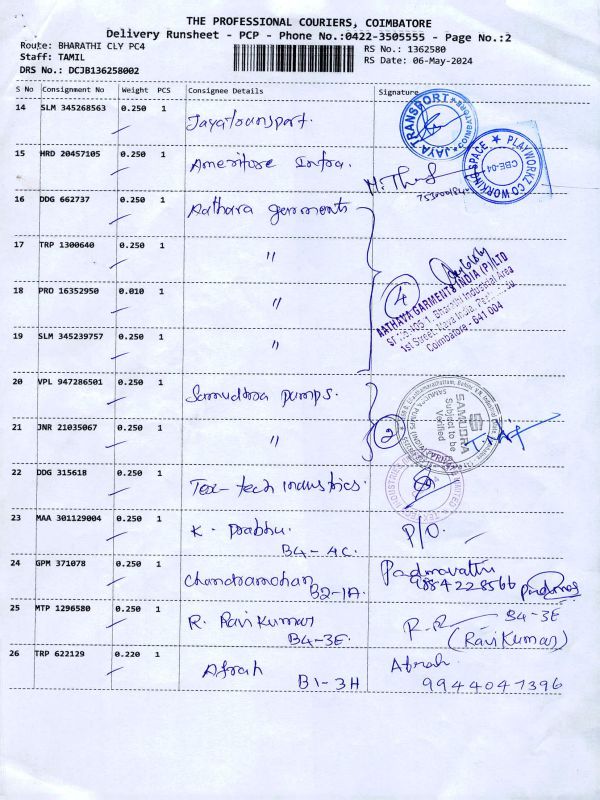 THE PROFESSIONAL COURIERS, COIMBATORE
Delivery Runsheet - PCP - Phone No.:0422-3505555 - Page No.:2
Route: BHARATHI CLY PC4
Staff: TAMIL
DRS No.: DCJB136258002
RS No.: 1362580
RS Date: 06-May-2024
S No Consignment No Weight PCS Consignee Details Signature
14 SLM 345268563 0.250 1 Jayatransport.
JAYA TRANSPORT
15 HRD 20457105 0.250 1 Infra.
PLAYWORKZ CO WORKING SPACE
CBE-04
16 DDG 662737 0.250 1 Aathava garments
17 TRP 1300640 0.250 1 "
18 PRO 16352950 0.010 1 "
4
AATHAVA GARMENTS INDIA (P) LTD
Bharathi Industrial Area
1st Street, Nava India
Coimbatore - 641 004
19 SLM 345239757 0.250 1 "
20 VPL 947286501 0.250 1 Samudra pumps.
SAMUDRA
Subject to be
Verified
21 JNR 21035067 0.250 1 " 2
22 DDG 315618 0.250 1 Tex-tech industrics.
23 MAA 301129004 0.250 1 K. Prabhu. P/O.
B4-4C.
24 GPM 371078 0.250 1 Chandramohan Padmavathi
B2-1A 9884228566
25 MTP 1296580 0.250 1 R. Ravikumar R.R B4-3E
B4-3E (RaviKumar)
26 TRP 622129 0.220 1 Afrah Afrah
B1-3H 9944047396